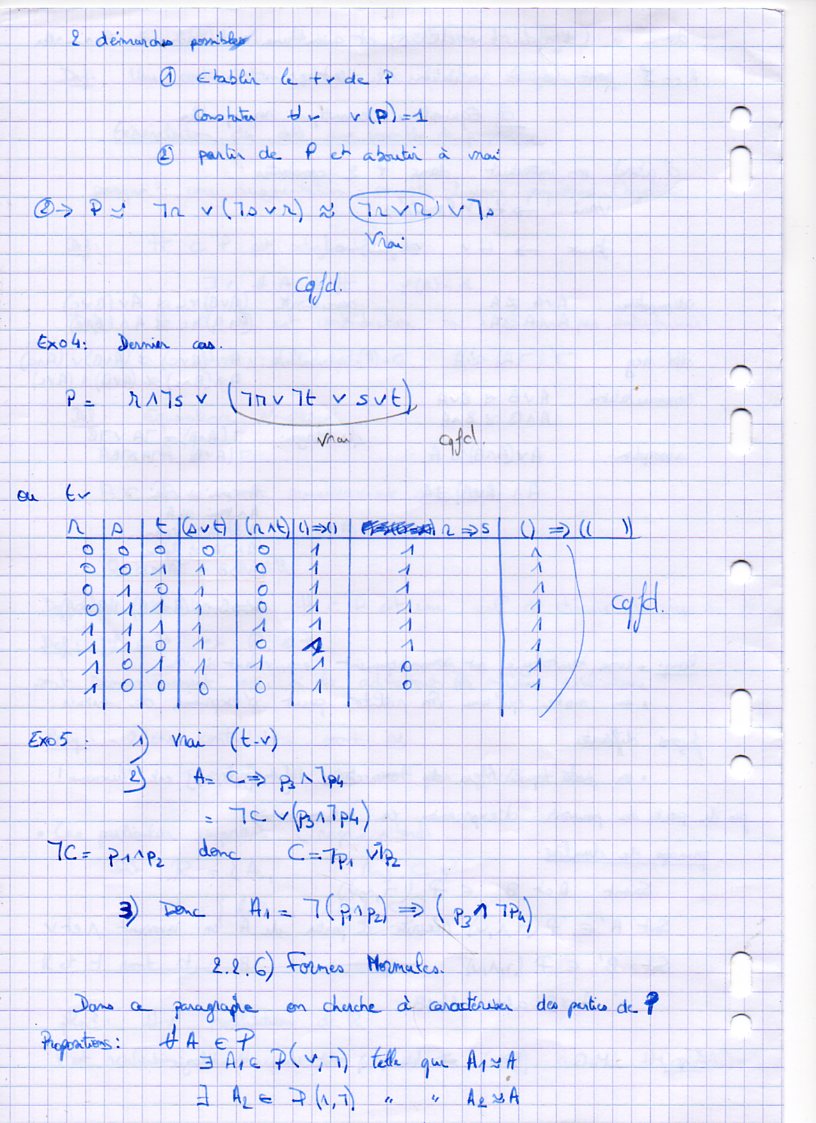 2 démarches possibles
① Etablir le tv de P
Constater ∀v v(P)=1
② partir de P et aboutir à vrai
②→ P ≈ ¬r ∨ (¬s ∨ r) ≈ (¬r ∨ r) ∨ ¬s
Vrai
cqfd.
Exo4: Dernier cas.
P = r∧¬s ∨ (¬r ∨ ¬t ∨ s∨t)
vrai cqfd.
ou tv
r | s | t | (s∨t) | (r∧t) | ()⇒() | r⇒s | () ⇒ (( ))
0 0 0 0 0 1 1 1
0 0 1 1 0 1 1 1
0 1 0 1 0 1 1 1
0 1 1 1 0 1 1 1 cqfd.
1 1 1 1 1 1 1 1
1 1 0 1 0 1 1 1
1 0 1 1 1 1 0 1
1 0 0 0 0 1 0 1
Exo5 : 1) Vrai (t.v)
2) A = C ⇒ p3 ∧ ¬p4
= ¬C ∨ (p3∧¬p4)
¬C = p1∧p2 donc C = ¬p1 ∨ ¬p2
3) Donc A1 = ¬(p1∧p2) ⇒ (p3 ∧ ¬p4)
2.2.6) Formes Normales.
Dans ce paragraphe on cherche à caractériser des parties de P
Propositions: ∀A ∈ P
∃ A1 ∈ P(∨,¬) telle que A1 ≈ A
∃ A2 ∈ P(∧,¬) " " A2 ≈ A